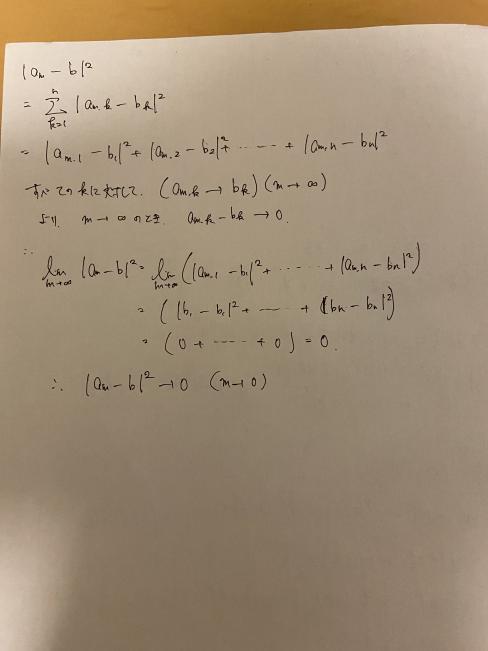 |aₘ - b|²
= Σₖ₌₁ⁿ |aₘ.ₖ - bₖ|²
= |aₘ.₁ - b₁|² + |aₘ.₂ - b₂|² + ······ + |aₘ.ₙ - bₙ|²
すべてのkに対して. (aₘ.ₖ → bₖ) (m → ∞)
より. m → ∞ のとき. aₘ.ₖ - bₖ → 0.
∴
lim_{m→∞} |aₘ - b|² = lim_{m→∞} (|aₘ.₁ - b₁|² + ······ + |aₘ.ₙ - bₙ|²)
= (|b₁ - b₁|² + ······ + |bₙ - bₙ|²)
= (0 + ······ + 0) = 0.
∴ |aₘ - b|² → 0 (m → 0)